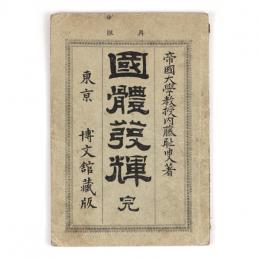 再版
帝國大學教授內藤耻叟著
國體發輝 完
東京 博文館藏版